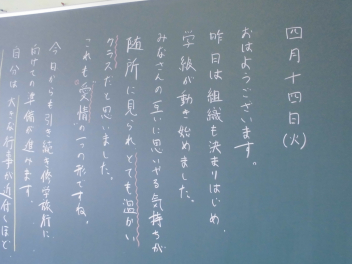 四月十四日(火)
おはようございます。
昨日は組織も決まりはじめ、
学級が動き始めました。
みなさんの互いに思いやる気持ちが
随所に見られとても温かい
クラスだと思いました。
これも愛情の一つの形ですね。
今日からも引き続き修学旅行に
向けての準備が進みます。
自分は大きな行事が近付くほど